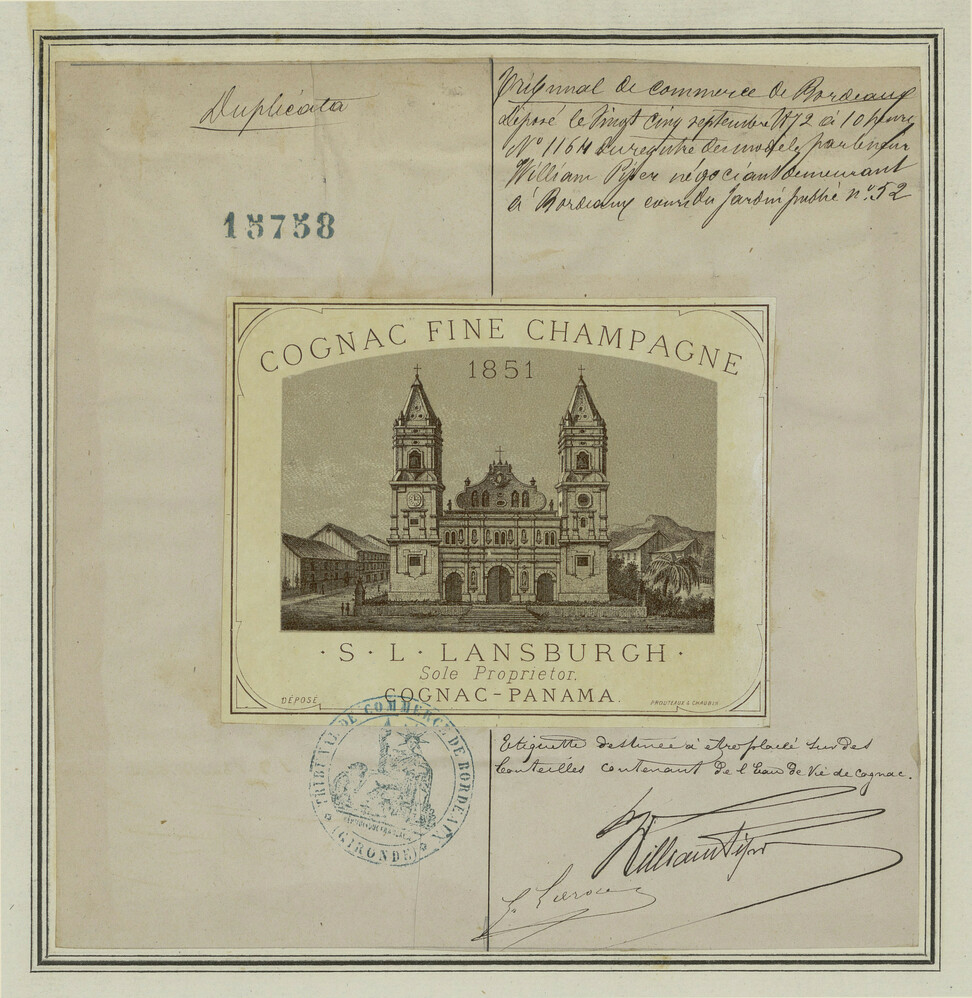 Duplicata
15758
Tribunal de commerce de Bordeaux
Déposé le vingt cinq septembre 1872 à 10 heures
N° 1164 du registre des modèles par le sieur
William Piper négociant demeurant
à Bordeaux cours du Jardin public n° 52
COGNAC FINE CHAMPAGNE
1851
· S · L · LANSBURGH ·
Sole Proprietor.
COGNAC-PANAMA.
DÉPOSÉ
PROUTEAUX & CHAGOIX
TRIBUNAL DE COMMERCE DE BORDEAUX
(GIRONDE)
Etiquette destinée à etre placée sur des
bouteilles contenant de l'Eau de Vie de cognac.
William Piper